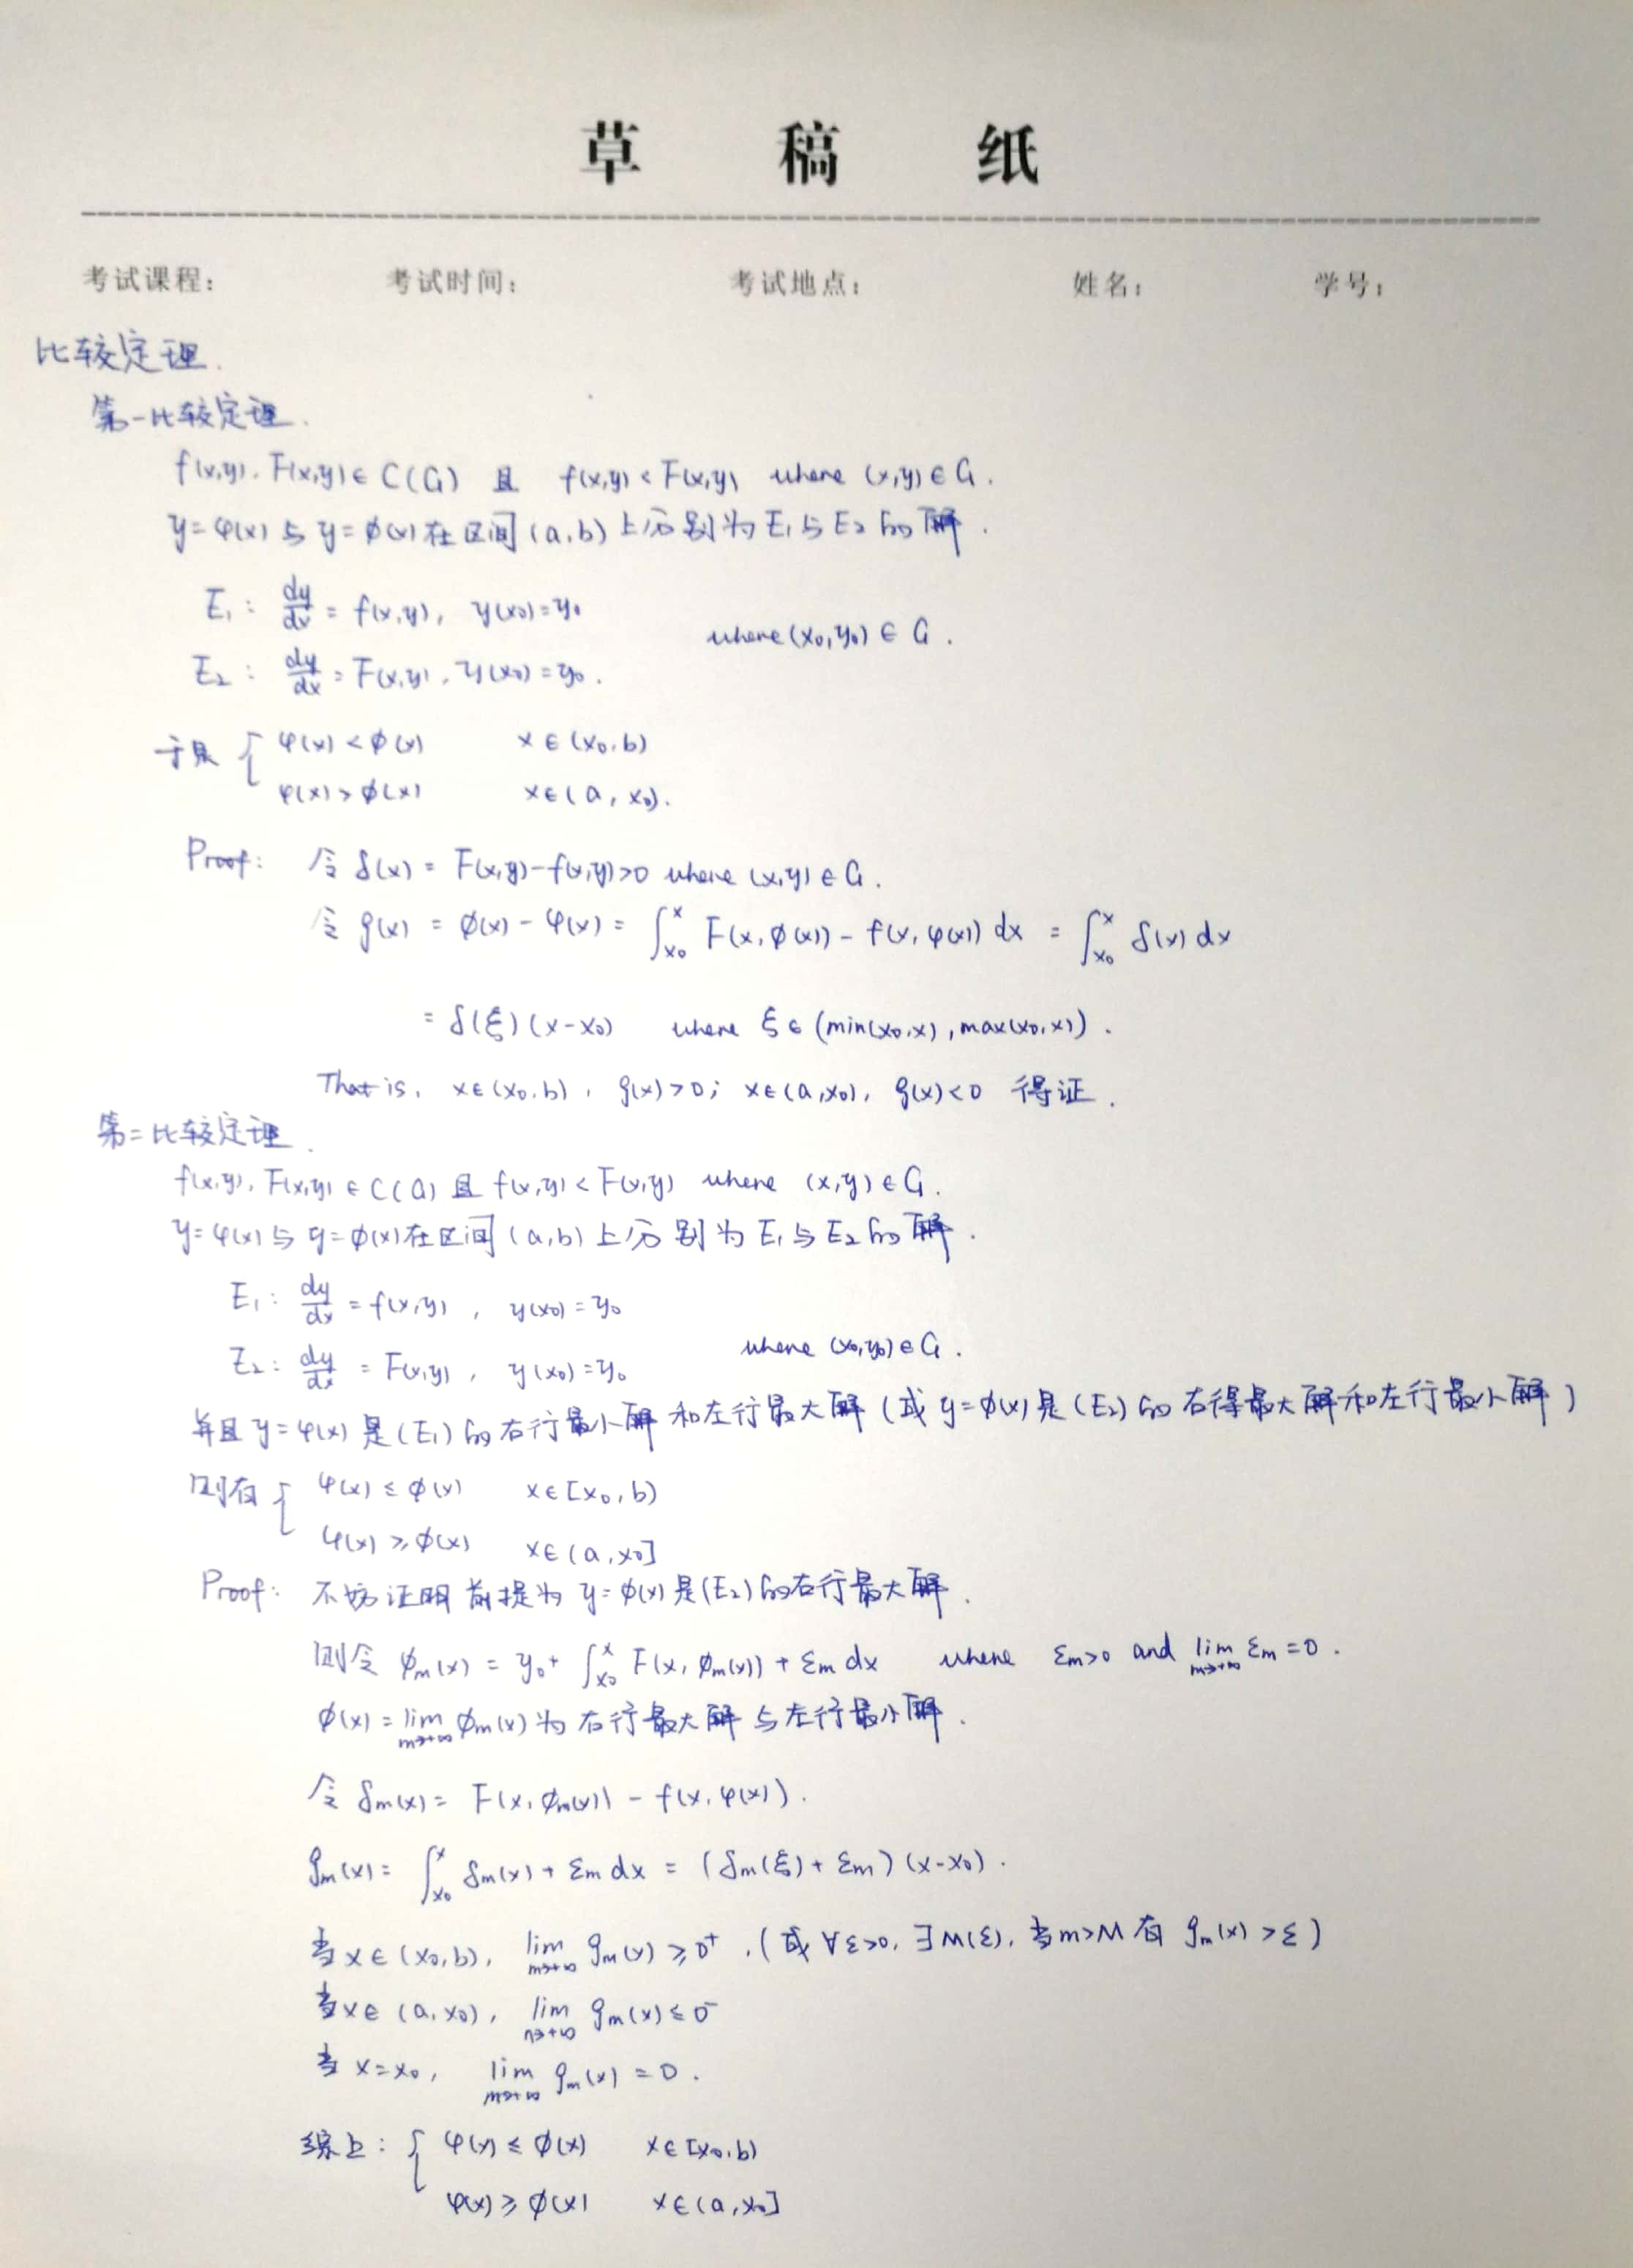 草 稿 纸
考试课程: 考试时间: 考试地点: 姓名: 学号:
比较定理.
第一比较定理.
f(x,y), F(x,y) ∈ C(G) 且 f(x,y) < F(x,y) where (x,y) ∈ G.
y=φ(x) 与 y=ϕ(x) 在区间 (a,b) 上分别为 E₁ 与 E₂ 的解.
E₁: dy/dx = f(x,y), y(x₀)=y₀
where (x₀,y₀) ∈ G.
E₂: dy/dx = F(x,y), y(x₀)=y₀.
于是 { φ(x) < ϕ(x) x ∈ (x₀,b)
φ(x) > ϕ(x) x ∈ (a, x₀).
Proof: 令 δ(x) = F(x,y)-f(x,y)>0 where (x,y) ∈ G.
令 g(x) = ϕ(x) - φ(x) = ∫_{x₀}^{x} F(x,ϕ(x)) - f(x,φ(x)) dx = ∫_{x₀}^{x} δ(x) dx
= δ(ξ)(x-x₀) where ξ ∈ (min(x₀,x), max(x₀,x)).
That is, x∈(x₀,b), g(x)>0; x∈(a,x₀), g(x)<0 得证.
第二比较定理.
f(x,y), F(x,y) ∈ C(G) 且 f(x,y) < F(x,y) where (x,y) ∈ G.
y=φ(x) 与 y=ϕ(x) 在区间 (a,b) 上分别为 E₁ 与 E₂ 的解.
E₁: dy/dx = f(x,y), y(x₀)=y₀
where (x₀,y₀) ∈ G.
E₂: dy/dx = F(x,y), y(x₀)=y₀
并且 y=φ(x) 是 (E₁) 的右行最小解和左行最大解 (或 y=ϕ(x) 是 (E₂) 的右得最大解和左行最小解)
则有 { φ(x) ≤ ϕ(x) x∈[x₀,b)
φ(x) ≥ ϕ(x) x∈(a,x₀]
Proof: 不妨证明前提为 y=ϕ(x) 是 (E₂) 的右行最大解.
则令 ϕₘ(x) = y₀ + ∫_{x₀}^{x} F(x,ϕₘ(x)) + εₘ dx where εₘ>0 and lim_{m→+∞} εₘ = 0.
ϕ(x) = lim_{m→+∞} ϕₘ(x) 为右行最大解与左行最小解.
令 δₘ(x) = F(x,ϕₘ(x)) - f(x,φ(x)).
gₘ(x) = ∫_{x₀}^{x} δₘ(x) + εₘ dx = (δₘ(ξ) + εₘ)(x-x₀).
当 x∈(x₀,b), lim_{m→+∞} gₘ(x) ≥ 0⁺. (或 ∀ε>0, ∃M(ε), 当 m>M 有 gₘ(x) > ε)
当 x∈(a,x₀), lim_{n→+∞} gₘ(x) ≤ 0⁻
当 x=x₀, lim_{m→+∞} gₘ(x) = 0.
综上: { φ(x) ≤ ϕ(x) x∈[x₀,b)
φ(x) ≥ ϕ(x) x∈(a,x₀]